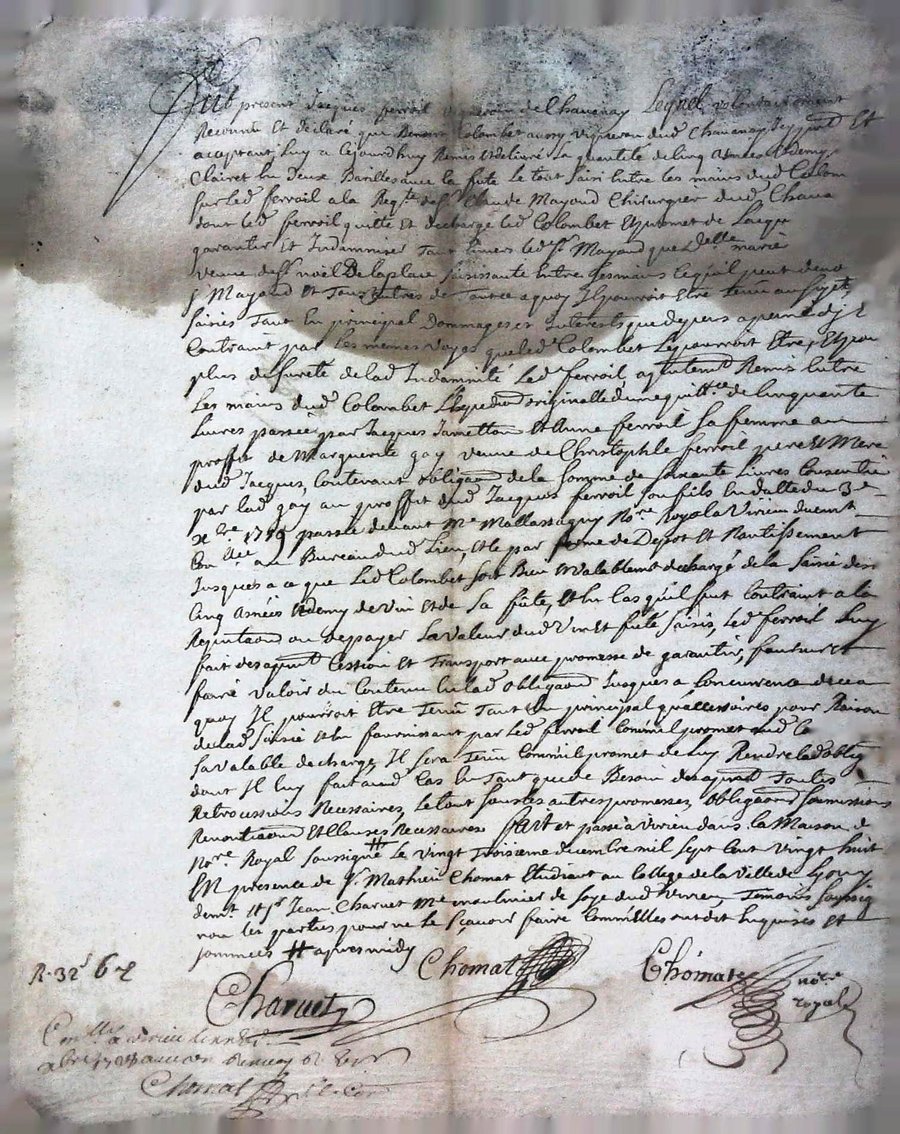 Fut present Jacques ferroil vigneron de Chavanay Lequel volontairement
Reconnu Et declaré que Benoist Colombet aussy vigneron dud Chavanay Et
acceptant luy a cejourdhuy Remis et delivré la quantité de Cinq asnees et demy
Clairet En deux Barilles avec la fute le tout saisi Entre les mains dud Colom
sur led ferroil a la Reqte de Sr Claude Mayoud Chirurgien dud Chava
dont led ferroil quitte Et decharge led Colombet Et promet de
garantir Et Indamniser Tant Envers led Sr Mayoud que Delle marie
veuve de Sr noël Delaplace saisissante Entre ses mains ce quil peut devo
Sr Mayoud Et Tous autres de Tout ce a quoy Il pourroit Etre tenu au sujet
saisies Tant En principal Dommages et Interests que depens a peine dy E
Contraint par les memes voyes que led Colombet le pourroit Etre, Et pou
plus de sureté de lad Indamnité Led ferroil a Remis Entre
Les mains dud Colombet Lexpedion originalle dune quittce de Cinquante
livres passée par Jacques Jametton Et Anne ferroil sa femme au
proffit de Marguerite gay veuve de Christophle ferroil pere Et Mere
dud Jacques, Contenant obligaon de la somme de soixante livres Consentie
par lad gay au proffit dud Jacques ferroil son fils En datte du 3e
xbre passée devant Me Mallassagny Nore Royal a Virieu duemt
Conllée au Bureau dud Lieu, Et le par forme de Depot Et Nantissement
Jusques a ce que Led Colombet soit Bien Et valablemt dechargé de la saisie des
Cinq asnées Et demy de vin Et de la fute, Et En cas quil fut Contraint a la
ou de payer la valeur dud vin Et fute saisis, Led ferroil luy
fait des a Cession Et Transport avec promesse de garantir, fournir Et
faire valoir du Contenu En lad obligaon Jusques a Concurrence de ce a
quoy Il pourroit Etre Tenu Tant En principal quaccessoires pour Raison
de lad saisie Et En fournissant par Led ferroil Comm'il promet aud Co
la valable decharge, Il sera Tenu Comm'il promet de luy Rendre lad oblig
dont Il luy fait aud Cas En Tant que de Besoin des a Toutes
Retrocessions Necessaires, le tout sous les autres promesses, obligaons soumissions
Renontiaons Et Clauses Necessaires fait et passé a Virieu dans la Maison de
Nore Royal soussigné # Le vingt Troisieme decembre mil sept Cent vingt huit
En presence de Sr Mathieu Chomat Etudiant au College de la Ville de Lyon y
demt Et Sr Jean Charvet Me moulinier de soye dud Virieu, Temoins soussig
non les parties pour ne le scavoir faire Comm'Elles ont dit Enquises Et
sommees # apres midy
R. 32s 6d
Chomat
Chomat
nore
royal
Charvet
Conllé a virieu
Chomat